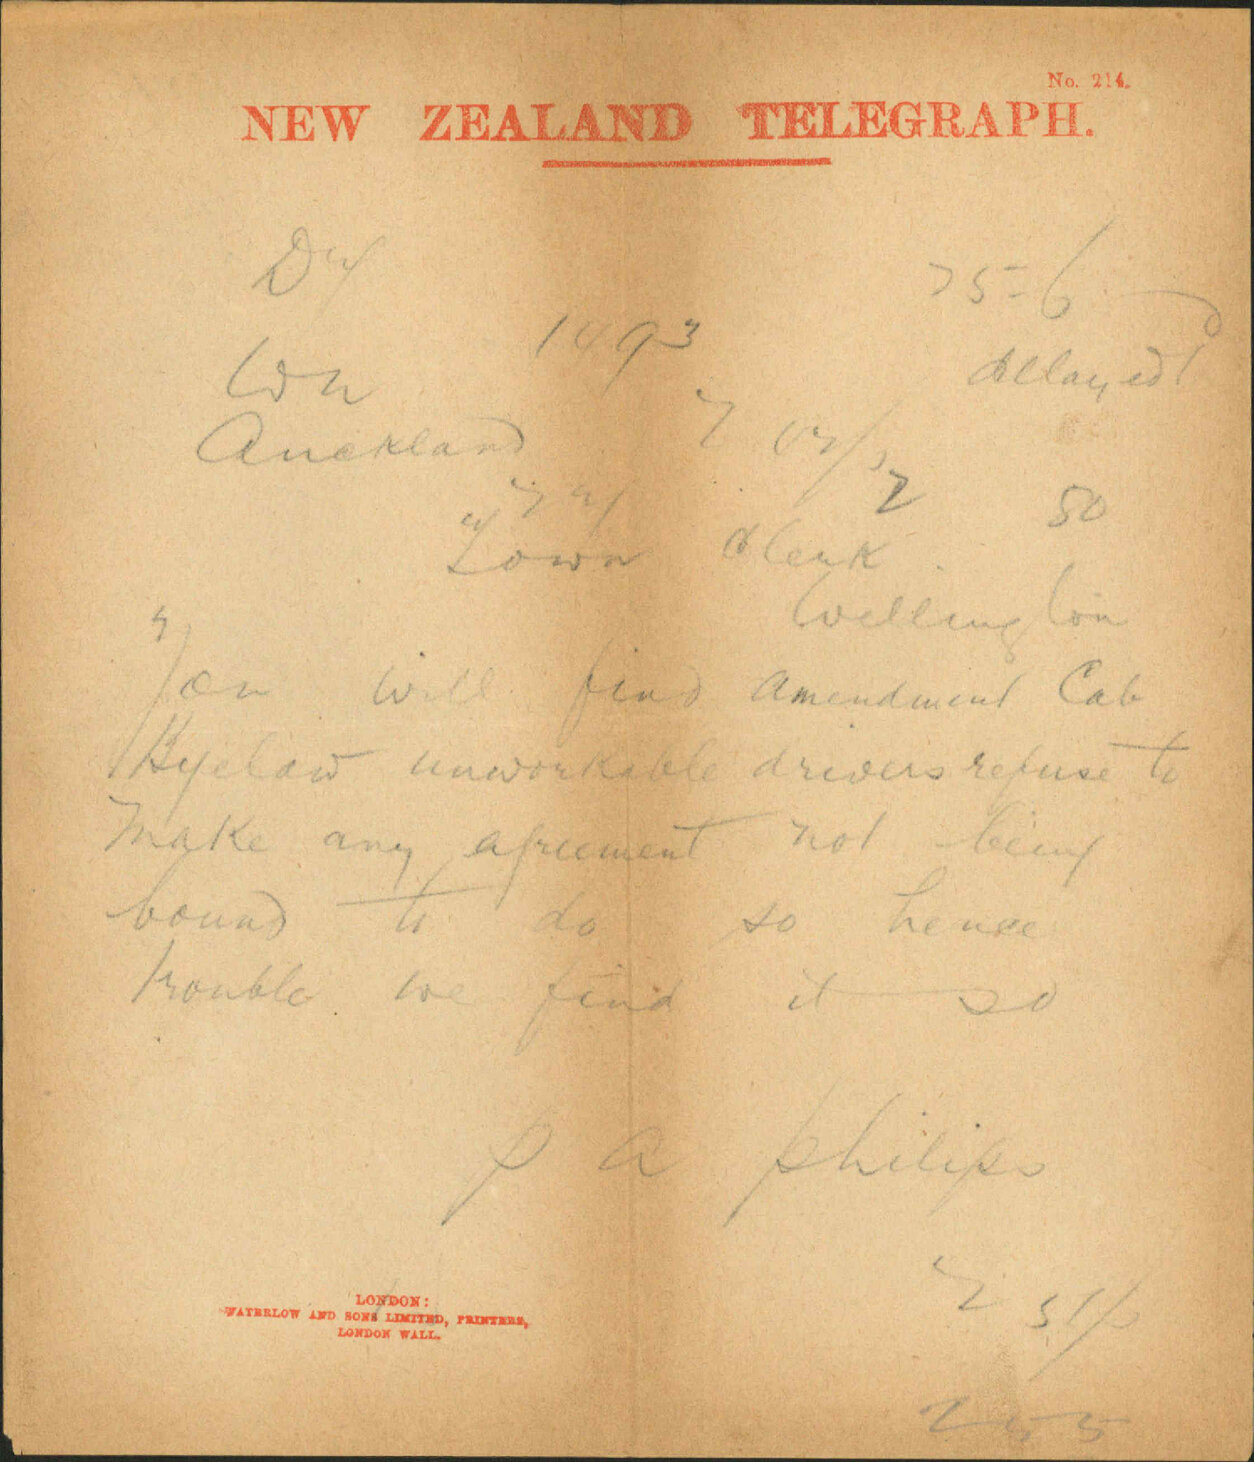 No. 214.
NEW ZEALAND TELEGRAPH.
75-6
Wn
Delayed
Auckland
50
Town Clerk
Wellington
You will find amendment Cab
Byelaw unworkable drivers refuse to
make any agreement not being
bound to do so hence
trouble we find it so
P A Philips
LONDON:
WATERLOW AND SONS LIMITED, PRINTERS,
LONDON WALL.